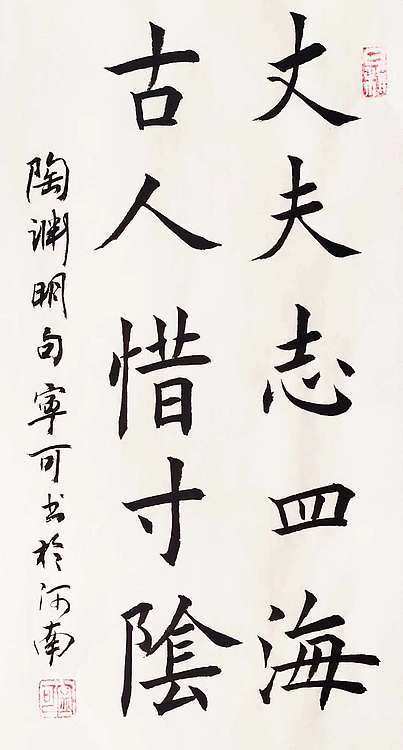 丈夫志四海
古人惜寸陰
陶渊明句寧可书於河南